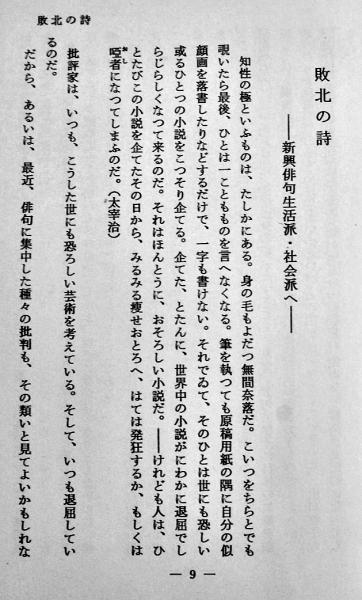 敗北の詩
敗北の詩
――新興俳句生活派・社会派へ――
知性の極といふものは、たしかにある。身の毛もよだつ無間奈落だ。こいつをちらとでも
覗いたら最後、ひとは一こともものを言へなくなる。筆を執つても原稿用紙の隅に自分の似
顔画を落書したりなどするだけで、一字も書けない。それでゐて、そのひとは世にも恐しい
或るひとつの小説をこつそり企てる。企てた、とたんに、世界中の小説がにわかに退屈でし
らじらしくなつて来るのだ。それはほんとうに、おそろしい小説だ。――けれども人は、ひ
とたびこの小説を企てたその日から、みるみる痩せおとろへ、はては発狂するか、もしくは
啞者になつてしまふのだ。（太宰治）
おし
批評家は、いつも、こうした世にも恐ろしい芸術を考えている。そして、いつも退屈してい
るのだ。
だから、あるいは、最近、俳句に集中した種々の批判も、その類いと見てよいかもしれな
― 9 ―